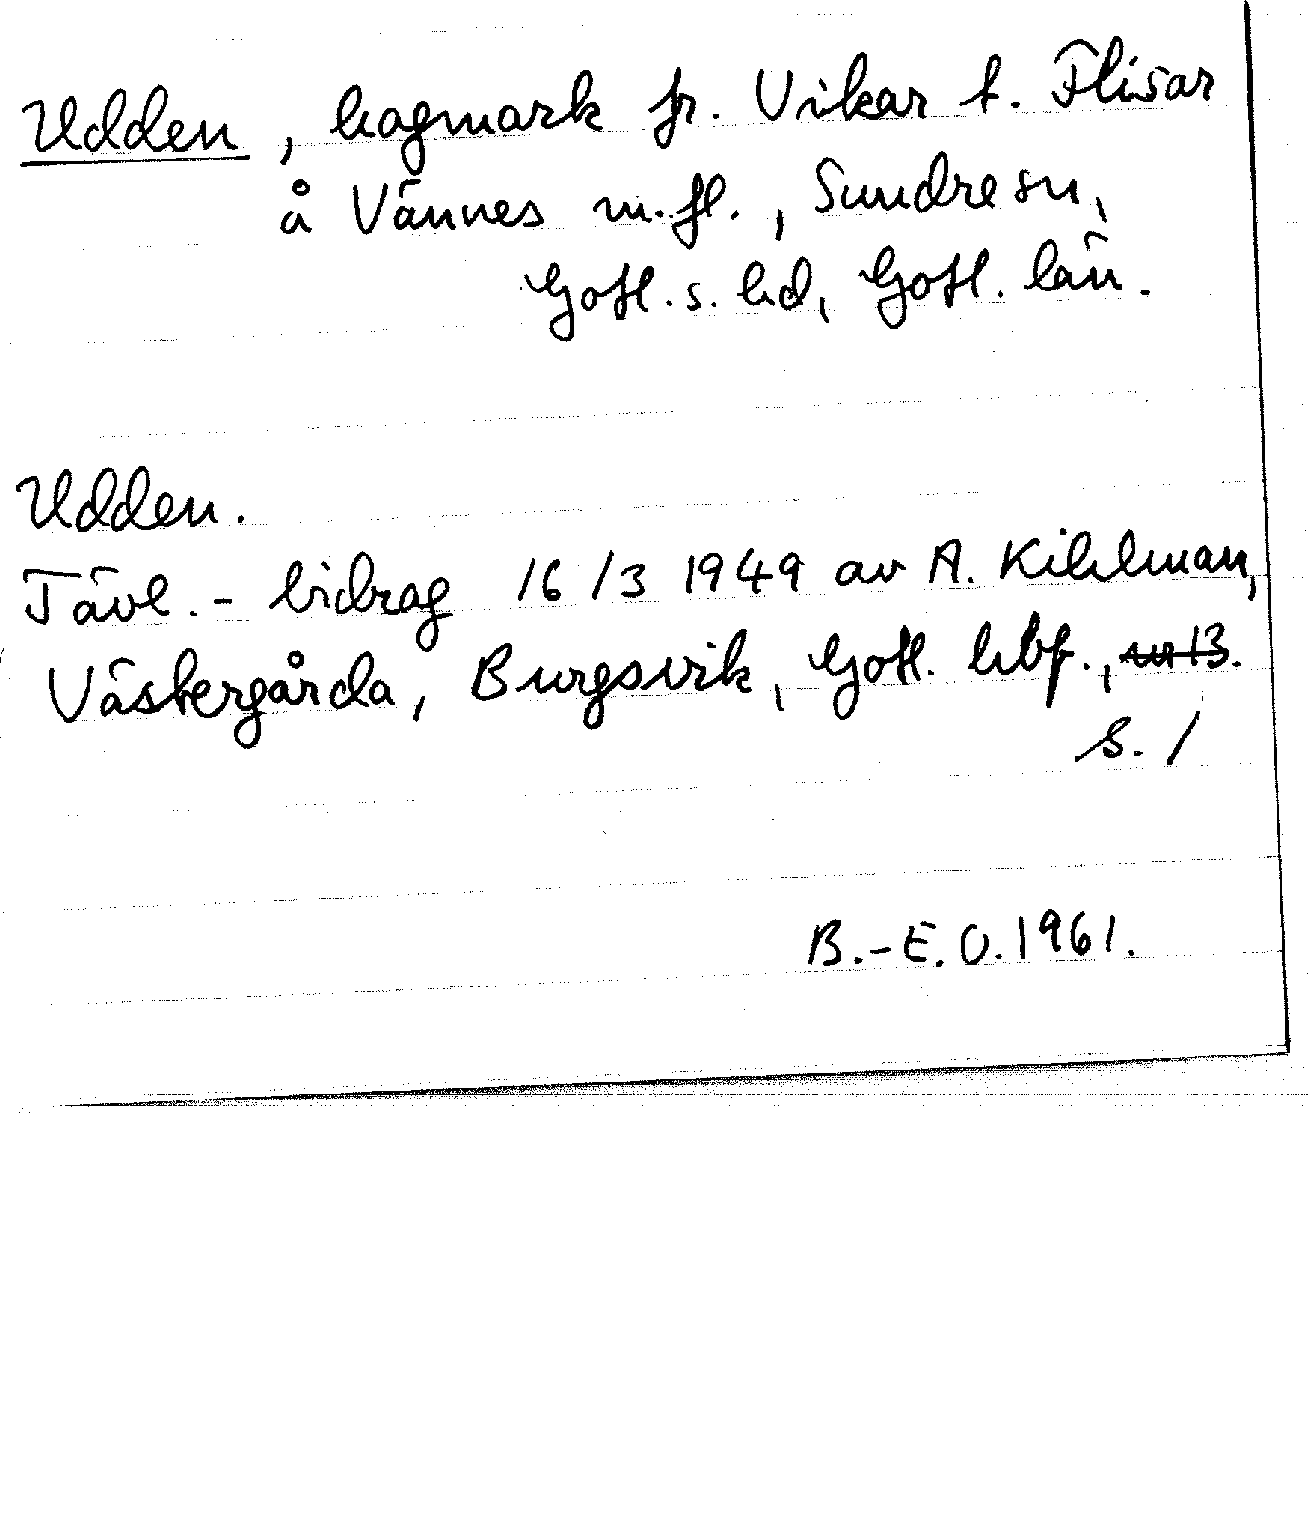 Udden, hagmark fr. Vikar t. Flisar
å Vännes m.fl., Sundre sn,
Gotl. s. hd, Gotl. län.
Udden.
Tävl.-bidrag 16/3 1949 av A. Kihlman,
Västergårda, Burgsvik, Gotl. hbf.,
s. 1
B.-E. O. 1961.